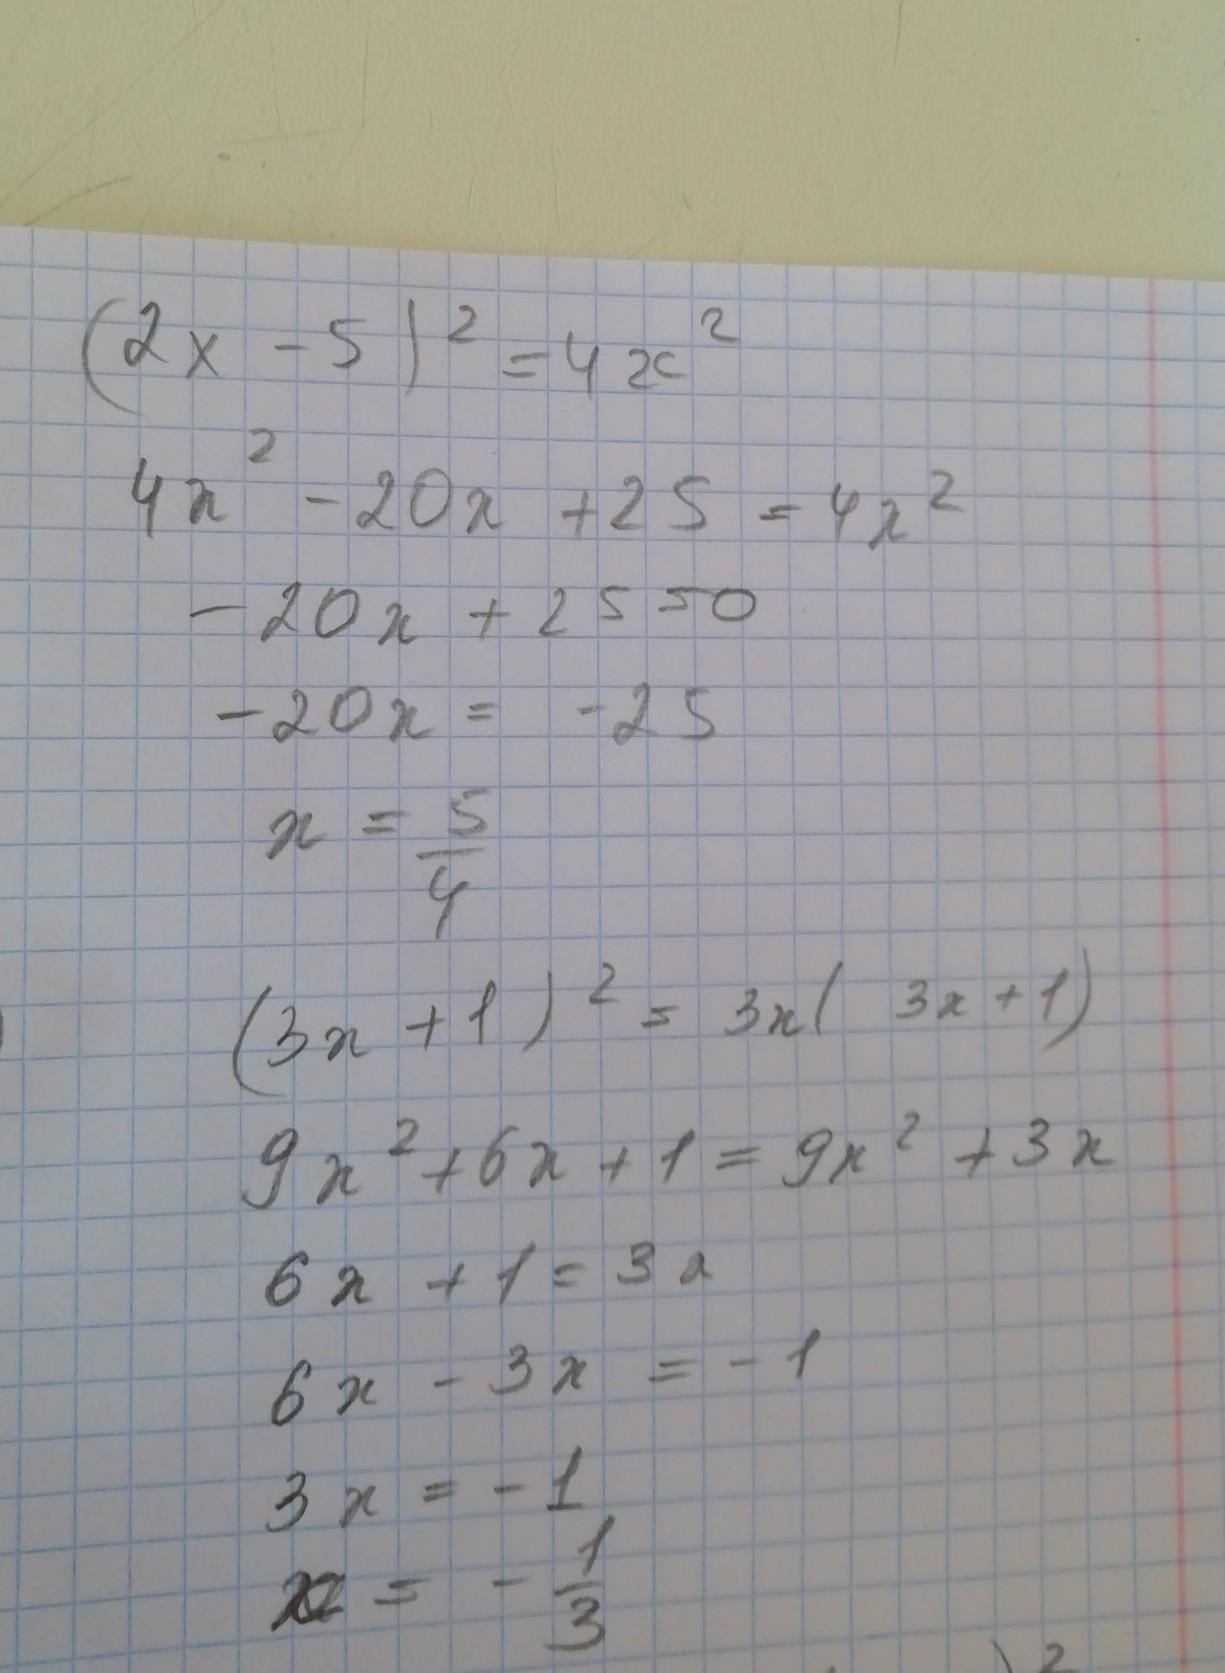 (2x - 5)² = 4x²
4x² - 20x + 25 = 4x²
- 20x + 25 = 0
- 20x = - 25
x = 5/4
) (3x + 1)² = 3x( 3x + 1)
9x² + 6x + 1 = 9x² + 3x
6x + 1 = 3x
6x - 3x = - 1
3x = - 1
x = - 1/3
)²